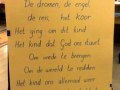 De dromen, de engel,
de neef, het koor
Het ging om dit kind
Het kind dat God ons stuurt
Om vrede te brengen
Om de wereld te redden
Het kind van allemaal weer